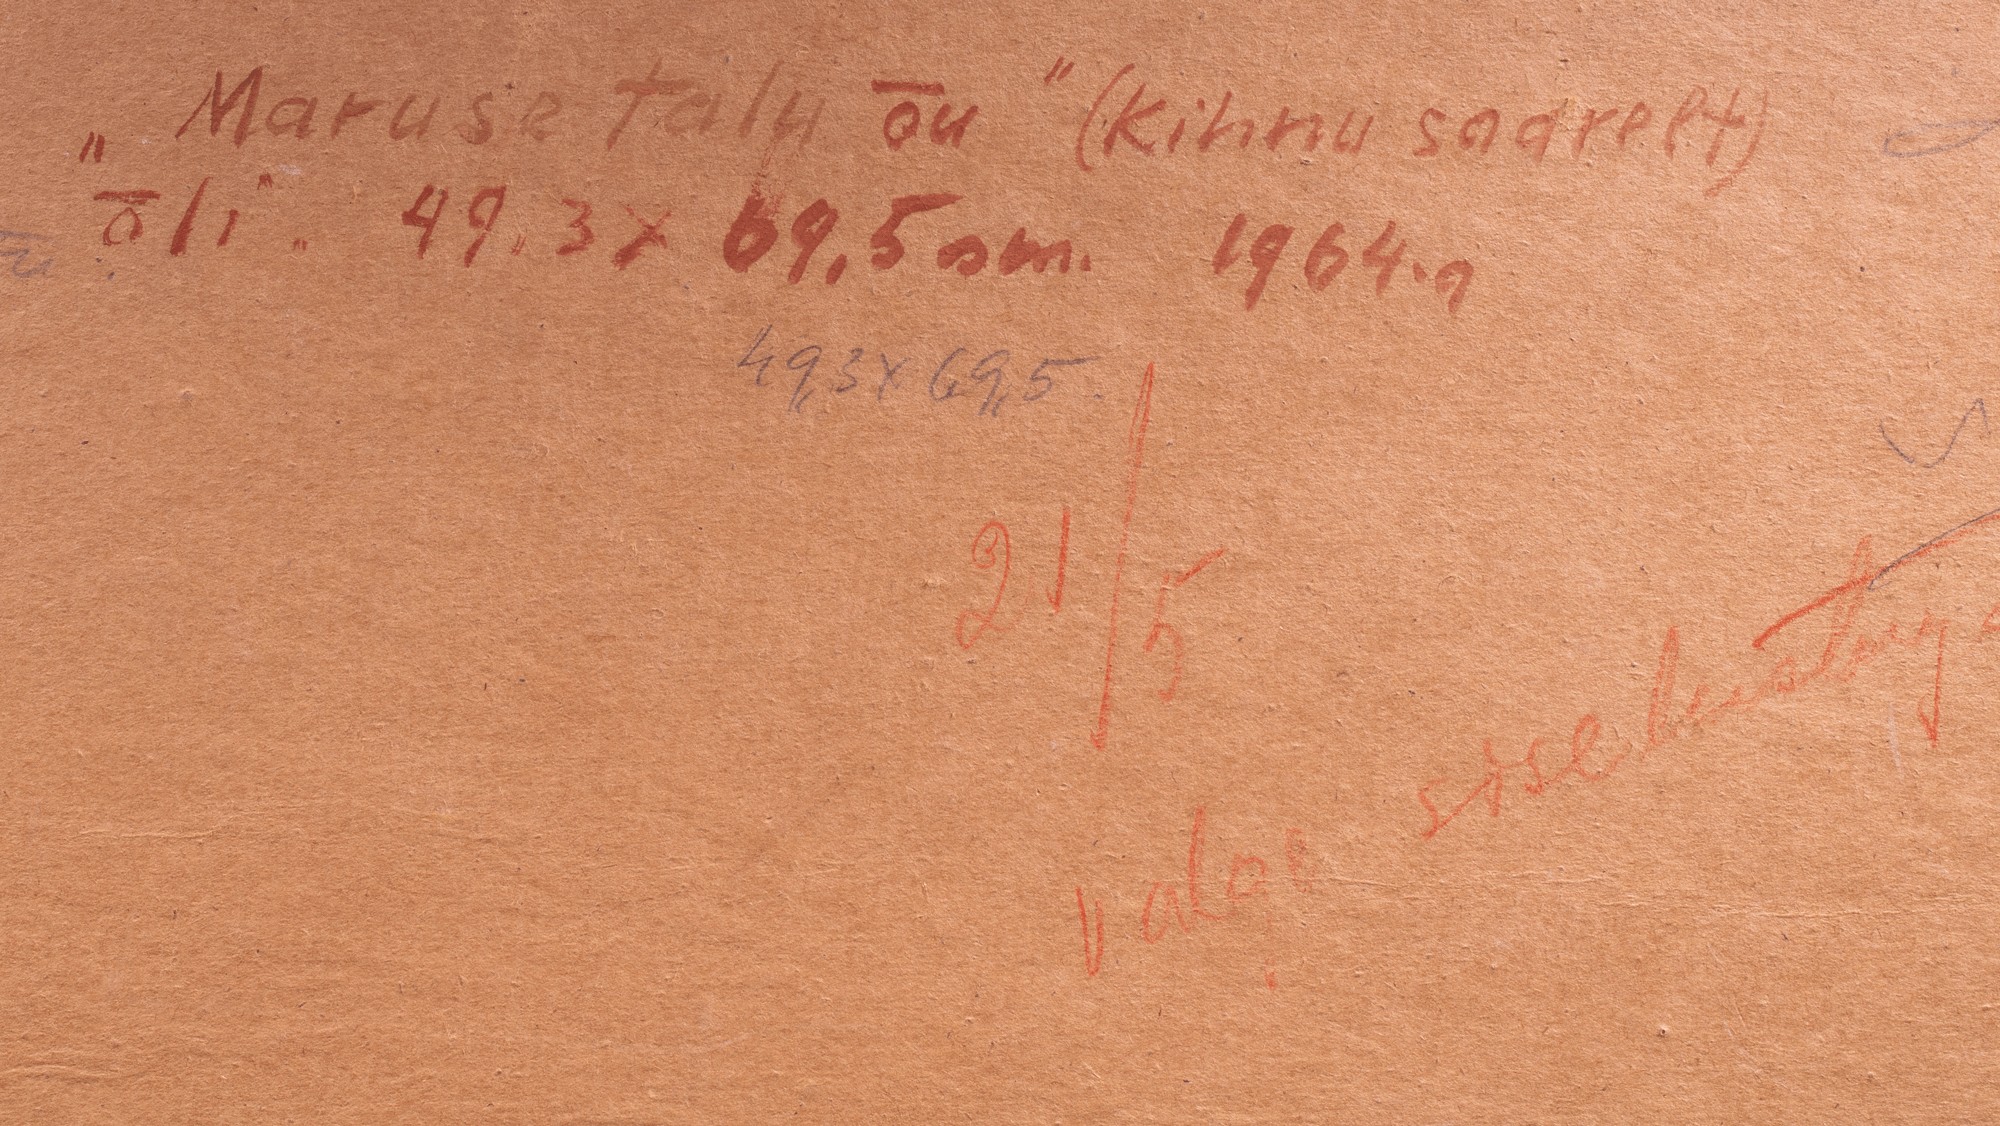 „Maruse talu õu" (Kihnu saarelt)
õli". 49.3 x 69,5 sm. 1964.a
49,3 x 69,5.
21/5
valge sise